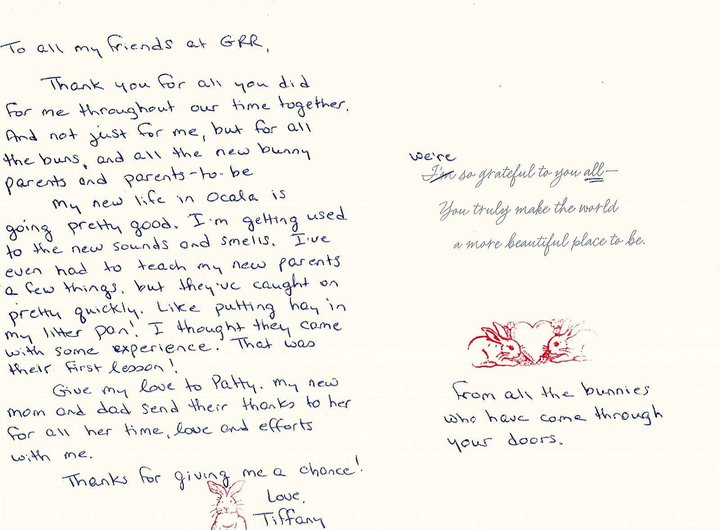 To all my friends at GRR,
Thank you for all you did
for me throughout our time together.
And not just for me, but for all
the buns, and all the new bunny
parents and parents-to-be
My new life in Ocala is
going pretty good. I'm getting used
to the new sounds and smells. I've
even had to teach my new parents
a few things, but they've caught on
pretty quickly. Like putting hay in
my litter pan! I thought they came
with some experience. That was
their first lesson!
Give my love to Patty. My new
mom and dad send their thanks to her
for all her time, love and efforts
with me.
Thanks for giving me a chance!
Love,
Tiffany
we're
I'm so grateful to you all—
You truly make the world
a more beautiful place to be.
From all the bunnies
who have come through
your doors.